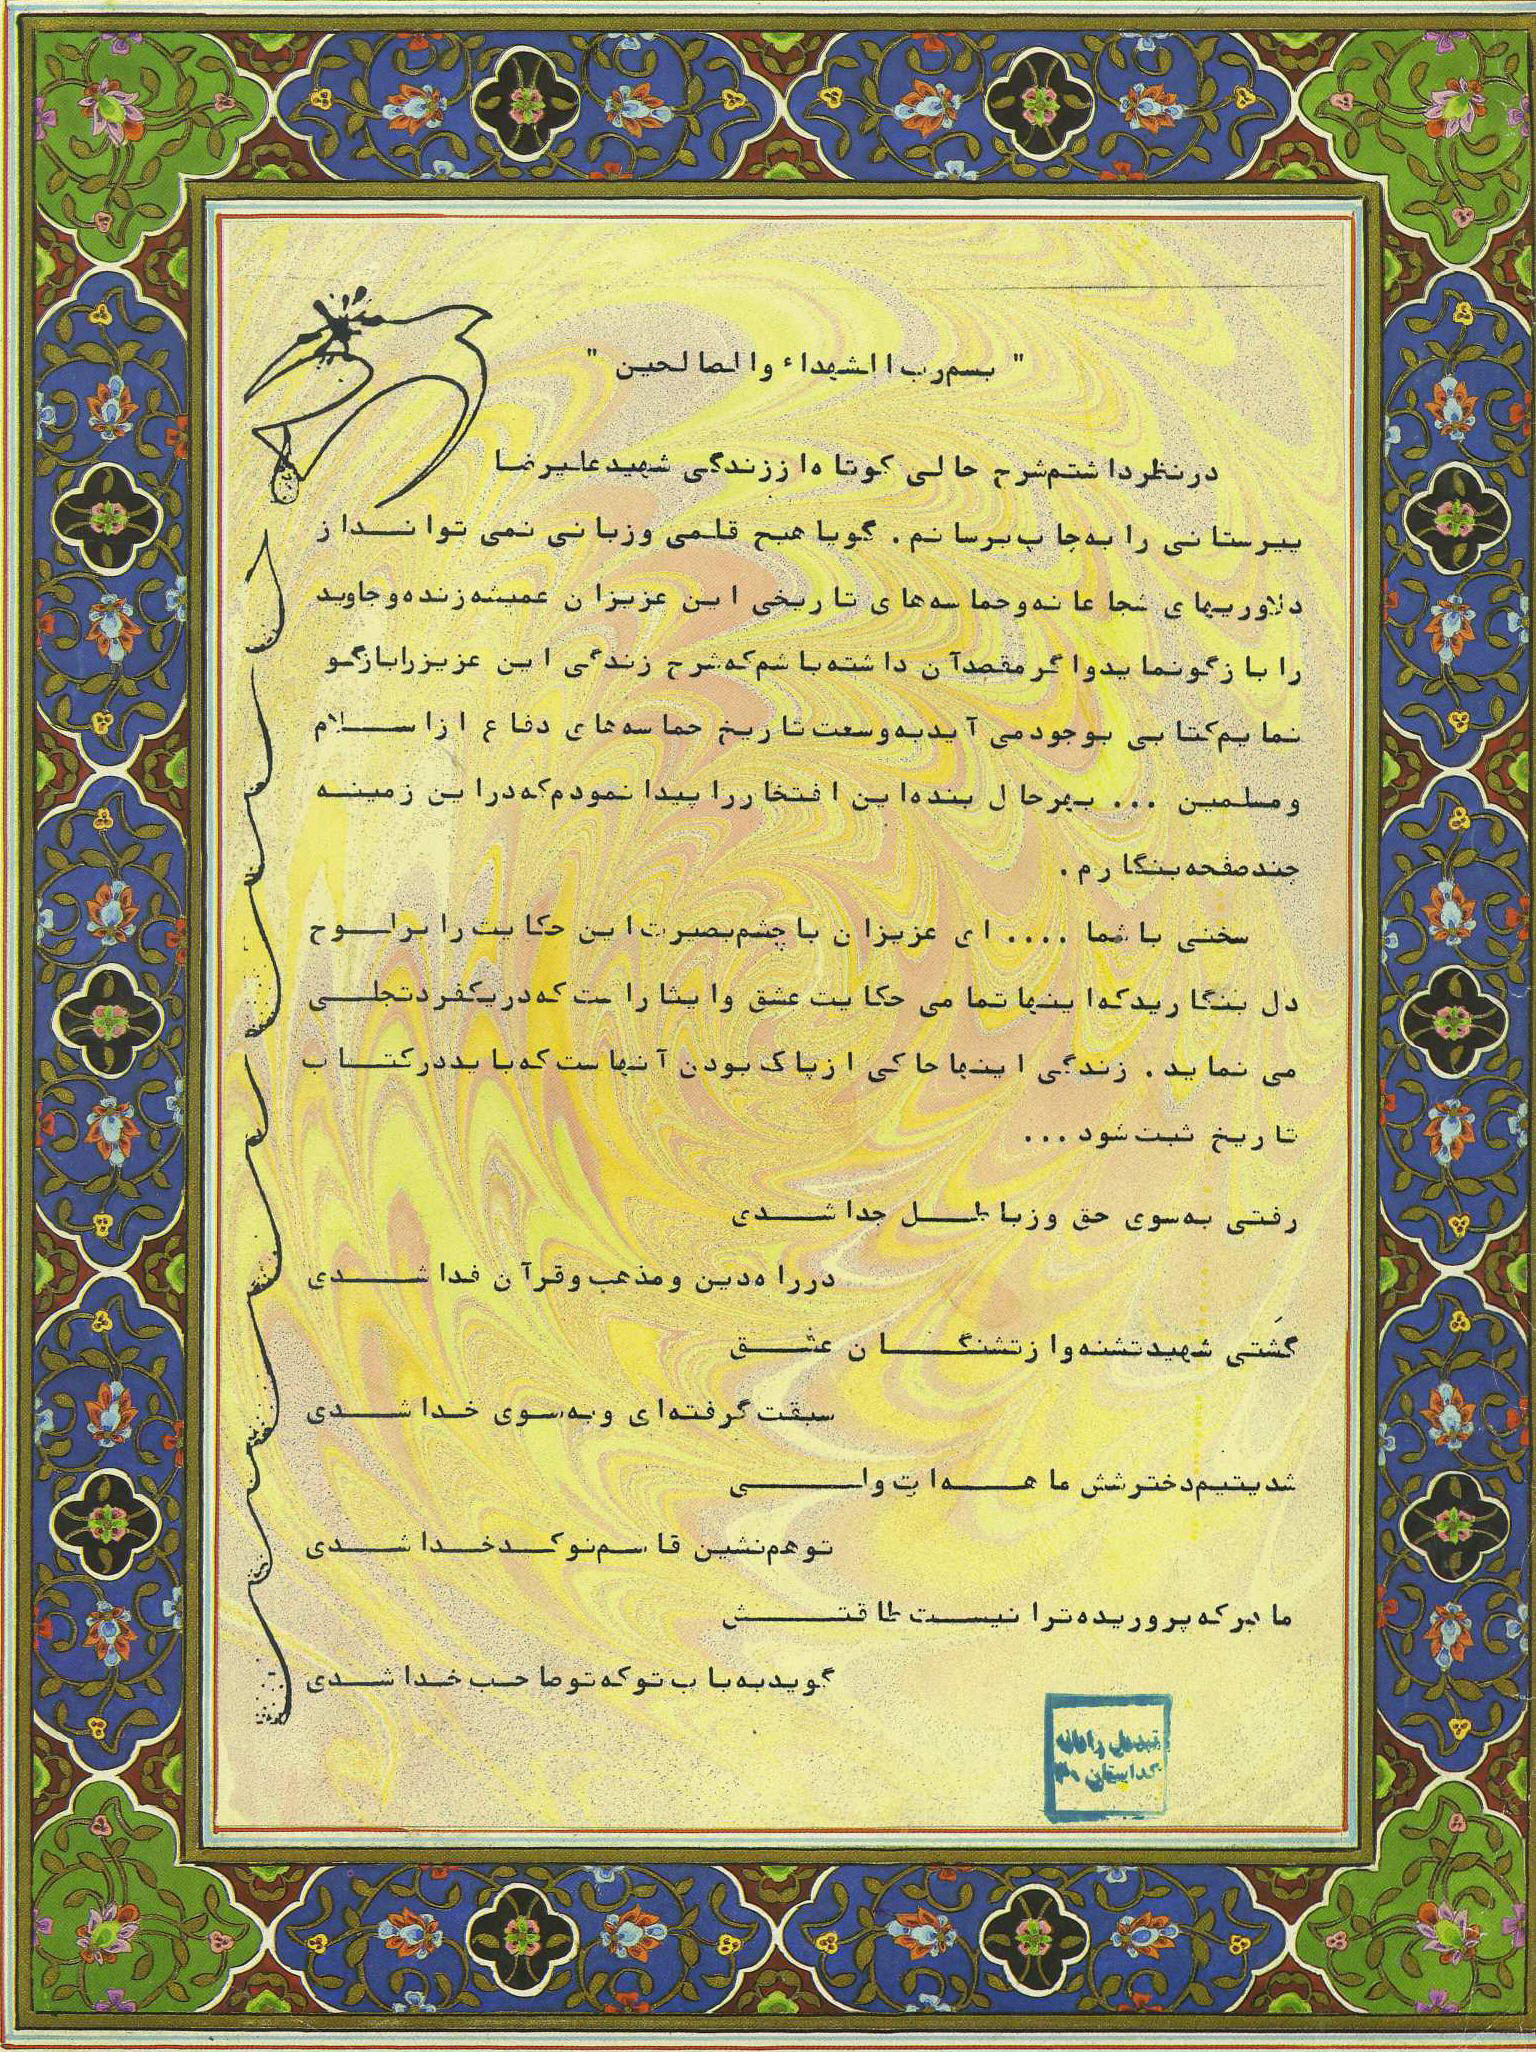 " بسم رب الشهداء والصالحین "
در نظر داشتم شرح حالی کوتاه از زندگی شهید علیرضا
بیرستانی را به چاپ برسانم . گویا هیچ قلمی و زبانی نمی تواند از
دلاوریهای شجاعانه و حماسه های تاریخی این عزیزان همیشه زنده و جاوید
را بازگو نماید و اگر مقصد آن داشته باشم که شرح زندگی این عزیز را بازگو
نمایم کتابی بوجود می آید به وسعت تاریخ حماسه های دفاع از اسلام
و مسلمین ... بهر حال بنده این افتخار را پیدا نمودم که در این زمینه
چند صفحه بنگارم .
سخنی با شما .... ای عزیزان با چشم بصیرت این حکایت را بر لوح
دل بنگارید که اینها تمامی حکایت عشق و ایثار است که در یک فرد تجلی
می نماید . زندگی اینها حاکی از پاک بودن آنهاست که باید در کتاب
تاریخ ثبت شود ...
رفتی به سوی حق و ز باطل جدا شدی
در راه دین و مذهب و قرآن فدا شدی
گشتی شهید تشنه و از تشنگان عشق
سبقت گرفته ای و به سوی خدا شدی
شد یتیم دختر شش ماهه ات ولی
تو هم نشین قاسم نو کدخدا شدی
مادر که پروریده ترا نیست طاقتش
گوید به باب تو که تو صاحب خدا شدی